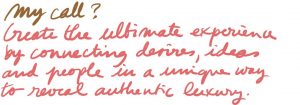 My call?
Create the ultimate experience
by connecting desires, ideas
and people in a unique way
to reveal authentic luxury.